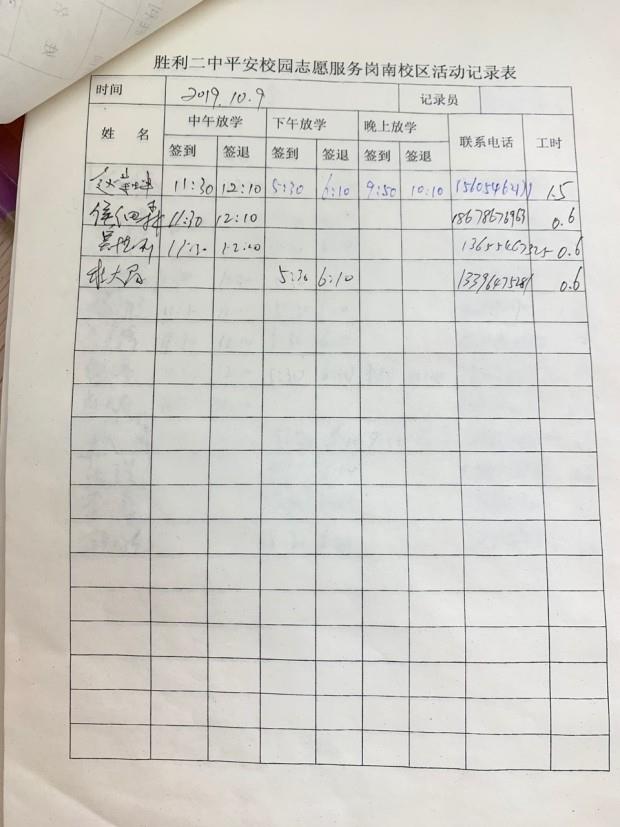 胜利二中平安校园志愿服务岗南校区活动记录表
时间 2019.10.9 记录员
姓 名 中午放学 下午放学 晚上放学 联系电话 工时
签到 签退 签到 签退 签到 签退
11:30 12:10 5:30 6:10 9:50 10:10 1.5
11:30 12:10 18678676963 0.6
11:30 12:10 13655467325 0.6
5:30 6:10 0.6